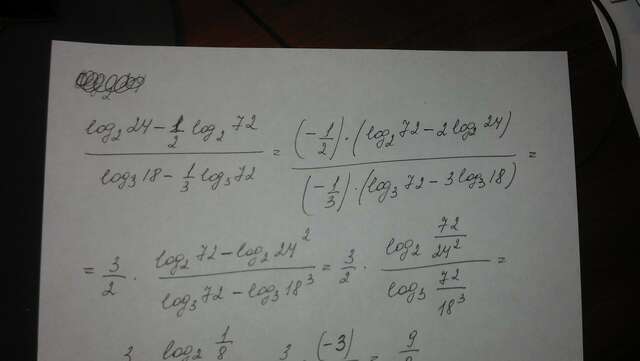 log₂ 24 - 1/2 log₂ 72 / log₃ 18 - 1/3 log₃ 72 = (-1/2)·(log₂ 72 - 2 log₂ 24) / (-1/3)·(log₃ 72 - 3 log₃ 18) =
= 3/2 · log₂ 72 - log₂ 24² / log₃ 72 - log₃ 18³ = 3/2 · log₂ 72/24² / log₃ 72/18³ =
3 log₂ 1/8 3 (-3) = 9